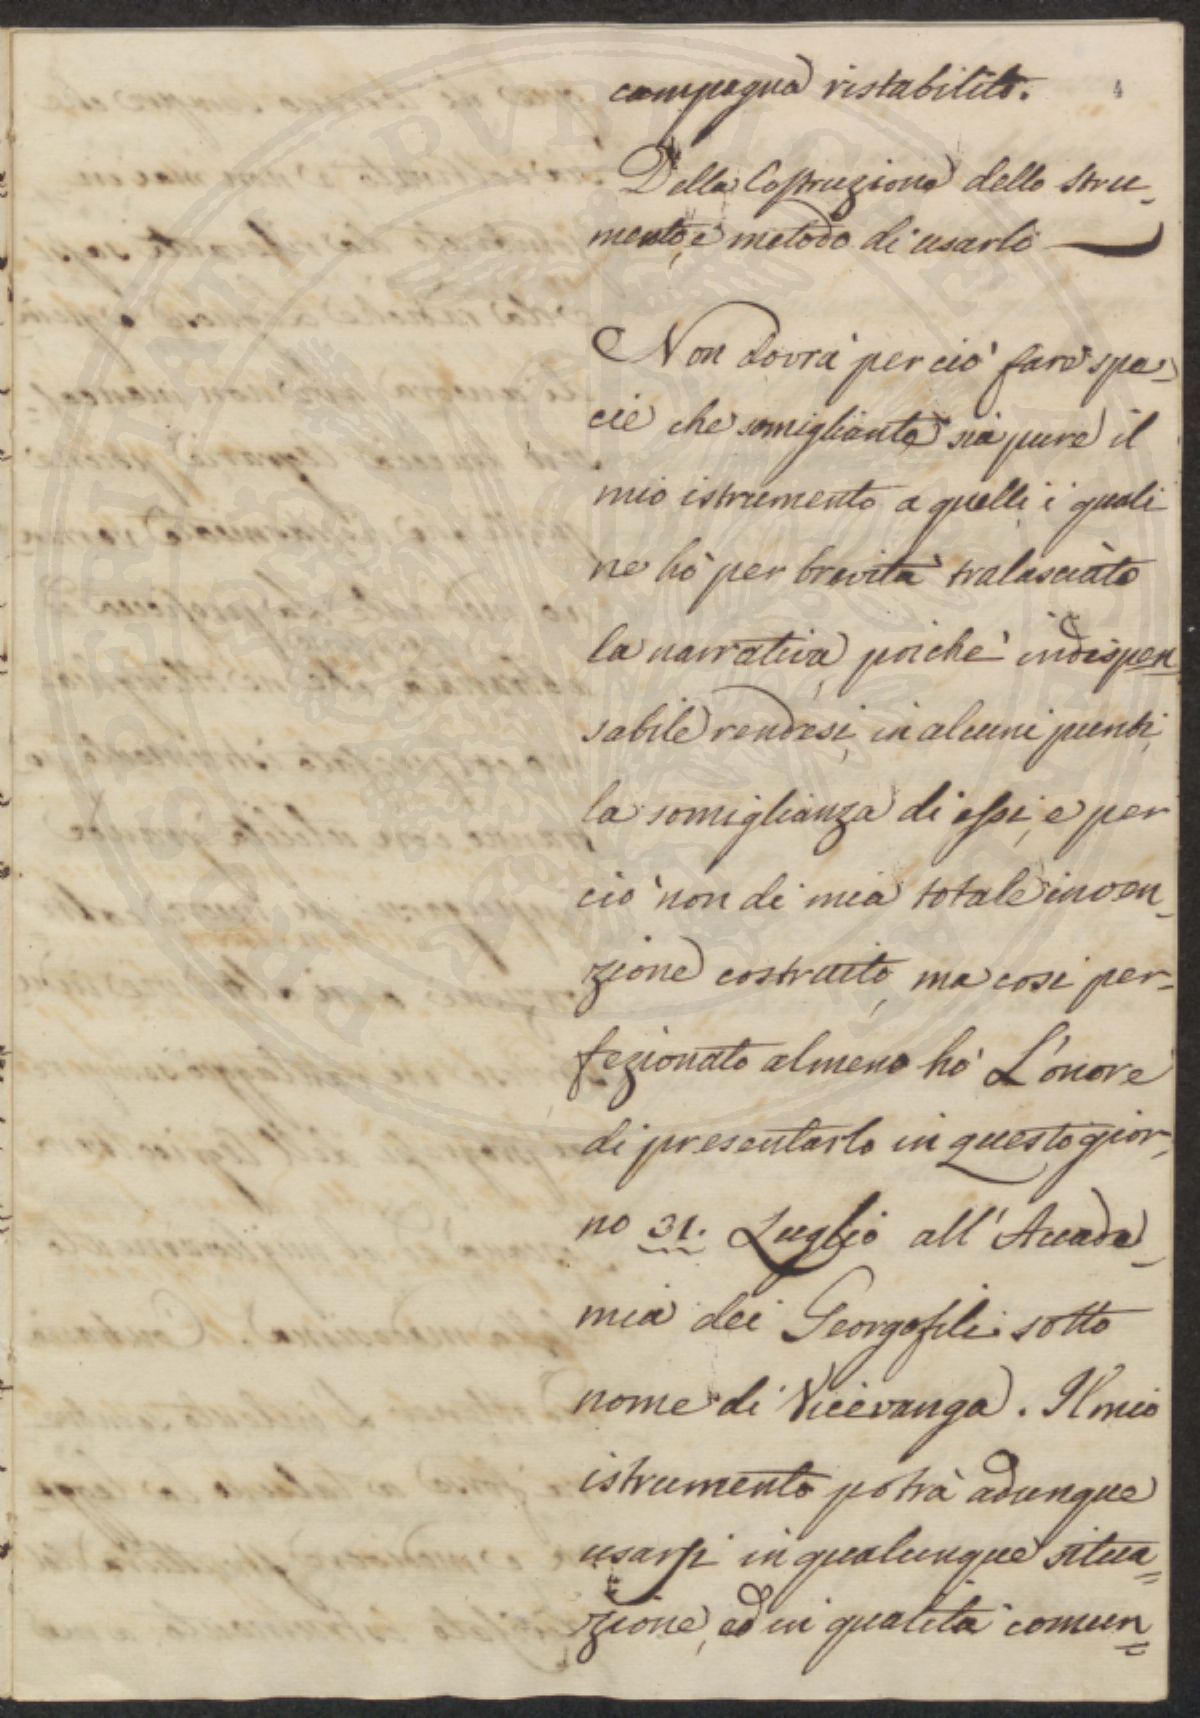 campagna ristabilito.
Della Costruzione dello stru-
mento, e metodo di usarlo
Non dovrà per ciò fare spe-
cie che somigliante sia pure il
mio istrumento a quelli i quali
ne hò per brevità tralasciato
la narrativa, poichè indispen
sabile rendesi, in alcuni punti,
la somiglianza di essi, e per
ciò non di mia totale inven-
zione costruito, ma così per-
fezionato almeno hò L'onore
di presentarlo in questo gior-
no 31. Luglio all'Accade-
mia dei Georgofili sotto
nome di Vicevanga. Il mio
istrumento potrà adunque
usarsi in qualunque situa=
zione, ed in qualità comun=